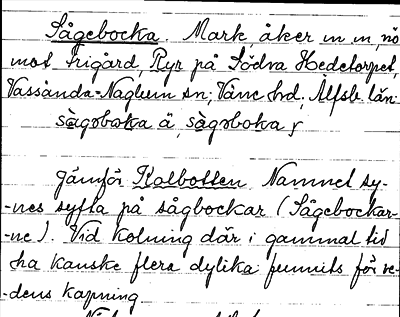 Sågebocka. Mark, åker m m, nö
mot Frigård, Ryr på Södra Hedetorpet,
Vassända-Naglum sn, Väne hd, Älfsb. län.
sågəboka ä, sågəboka,
Jämför Kolbotten. Namnet sy-
-nes syfta på sågbockar (Sågebockar-
-ne). Vid kolning där i gammal tid
ha kanske flera dylika funnits för ve-
-dens kapning